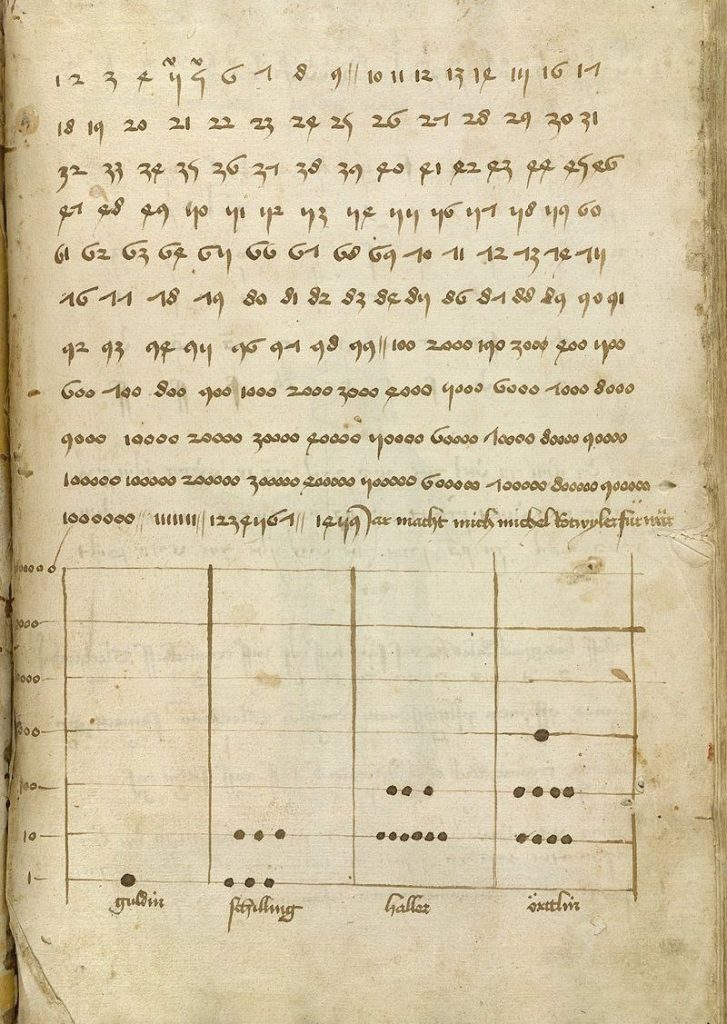 1 2 3 4 5 5 6 7 8 9 // 10 11 12 13 14 15 16 17
18 19 20 21 22 23 24 25 26 27 28 29 30 31
32 33 34 35 36 37 38 39 40 41 42 43 44 45 46
47 48 49 50 51 52 53 54 55 56 57 58 59 60
61 62 63 64 65 66 67 68 69 70 71 72 73 74 75
76 77 78 79 80 81 82 83 84 85 86 87 88 89 90 91
92 93 94 95 96 97 98 99 // 100 2000 190 3000 400 500
600 700 800 900 1000 2000 3000 4000 5000 6000 7000 8000
9000 10000 20000 30000 40000 50000 60000 70000 80000 90000
100000 100000 200000 300000 400000 500000 600000 700000 800000 900000
1000000 // 1111111 // 1234567 // 1459 Jar macht mich michel Rotwyler für
100
10
1
guldin schilling haller örttlin